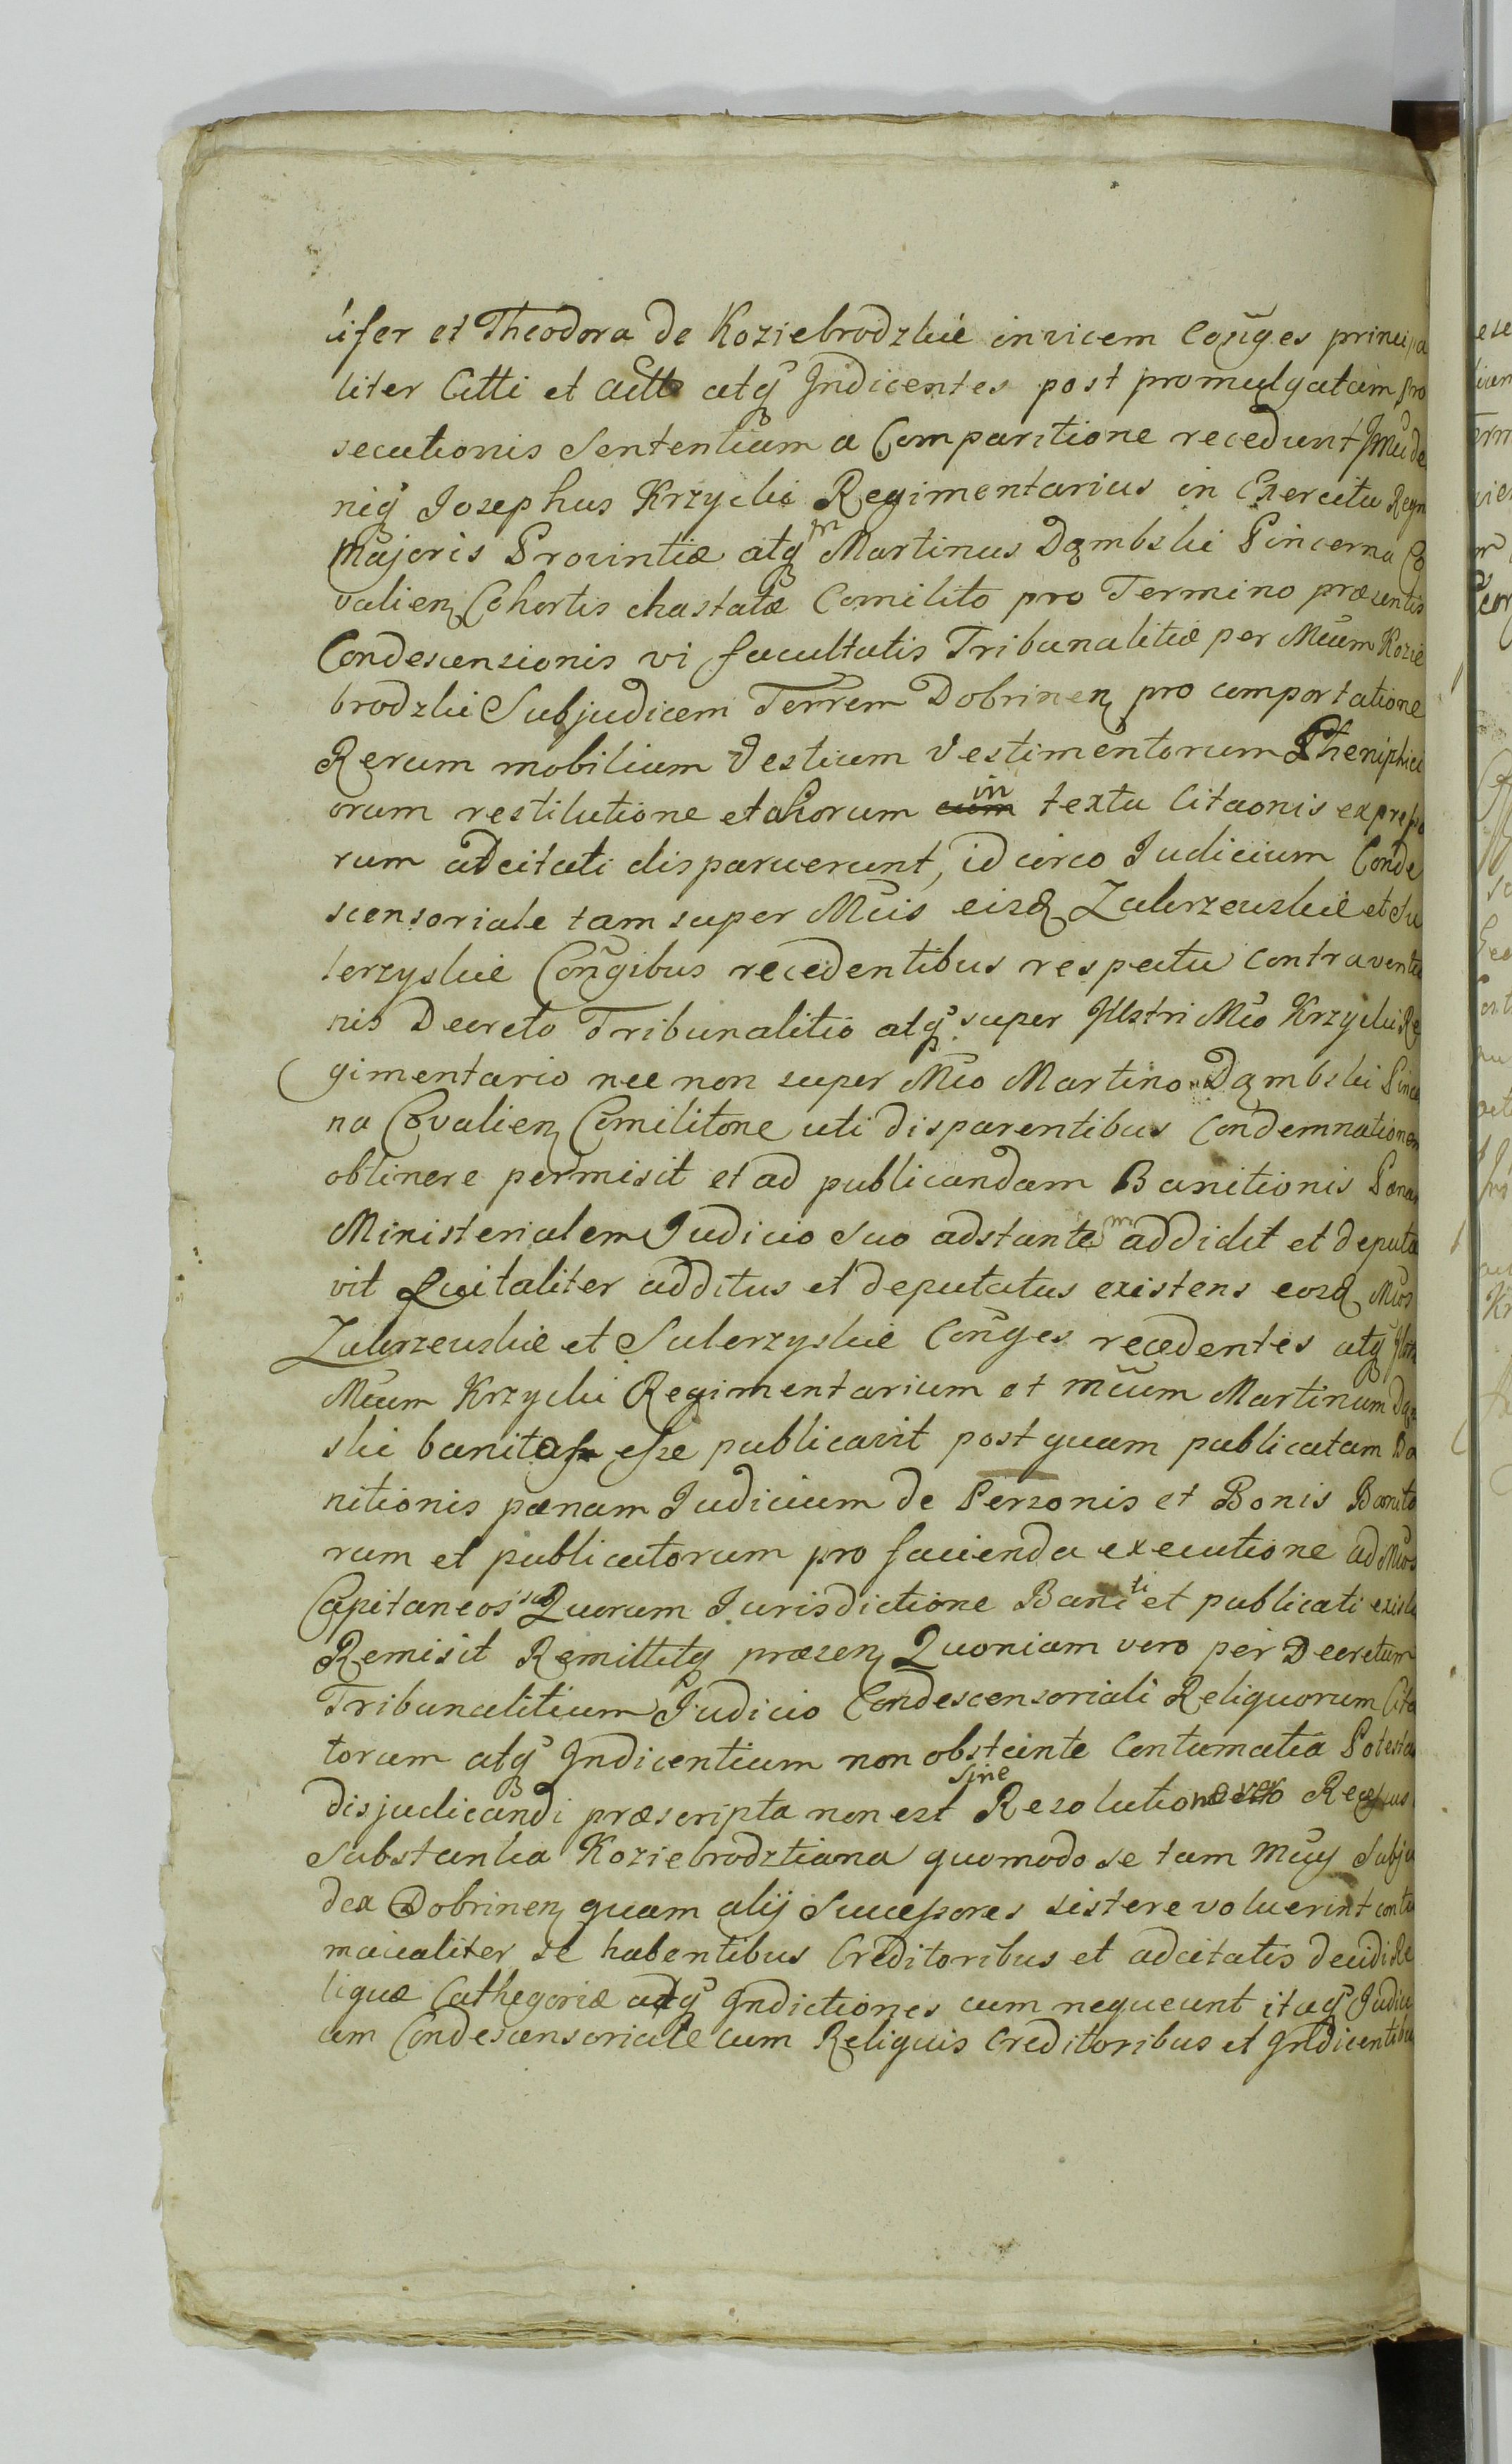 cifer et Theodora de Koziebrodzkie invicem Coñges principa
liter Citti et Actt atq̃ Indicentes post promulgatam pro
secutionis Sententiam a Comparitione recedunt
niq̃ Josephus Krzycki Regimentarius in Exercitu Regn
Majoris Provintiæ atq̃ M Martinus Dąmbski Pincerna Co
valień Cohortis hastatæ Comilito pro Termino præsentis
Condescensionis vi facultatis Tribunalitiæ per Mcum Kozie
brodzki Subjudicem Terrem Dobrineń pro comportatione
Rerum mobilium Vestium Vestimentorum
orum restitutione et aliorum in textu Citaonis expresso
rum adcitati disparuerunt, idcirco Judicium Conde
scensoriale tam super Mcis eisd Zakrzewskie et Su
lerzyskie Coñgibus recedentibus respectu contraventio
nis Decreto Tribunalitio atq̃ super Illstri Mco Krzycki Re
gimentario nec non super Mco Martino Dąmbski Pince
na Covalień Comilitone uti disparentibus Condemnationem
obtinere permisit et ad publicandam Banitionis Pænam
Ministerialem Judicio Suo adstantem addidit et deputa
vit Qui taliter additus et deputatus existens eosd Mcos
Zakrzewskie et Sulerzyskie Coñges recedentes atq̃
Mcum Krzycki Regimentarium et Mcum Martinum Dąm
ski banitos esse publicavit post quam publicatam Ba
nitionis pænam Judicium de Personis et Bonis Banito
rum et publicatorum pro facienda executione ad Mcos
Capitaneos Quorum Jurisdictione Baniti et publicati
Remisit Remittitq̃ præseń Quoniam vero per Decretum
Tribunalitium Judicio Condescensoriali Reliquorum Cita
torum atq̃ Indicentium non obstante Contumatia Potestas
disjudicandi præscripta non est sine Resolutione Recessus
Substantia Koziebrodztiana quomodo se tam Mcus Subju
dex Dobrineń quam alij Successores sistere voluerint contu
macialiter se habentibus Creditoribus et adcitatis decidi Re
liquæ Cathegoriæ atq̃ Indictiones cum nequeunt itaq̃ Judici
um Condescensoriale cum Reliquis Creditoribus et Indicentibus